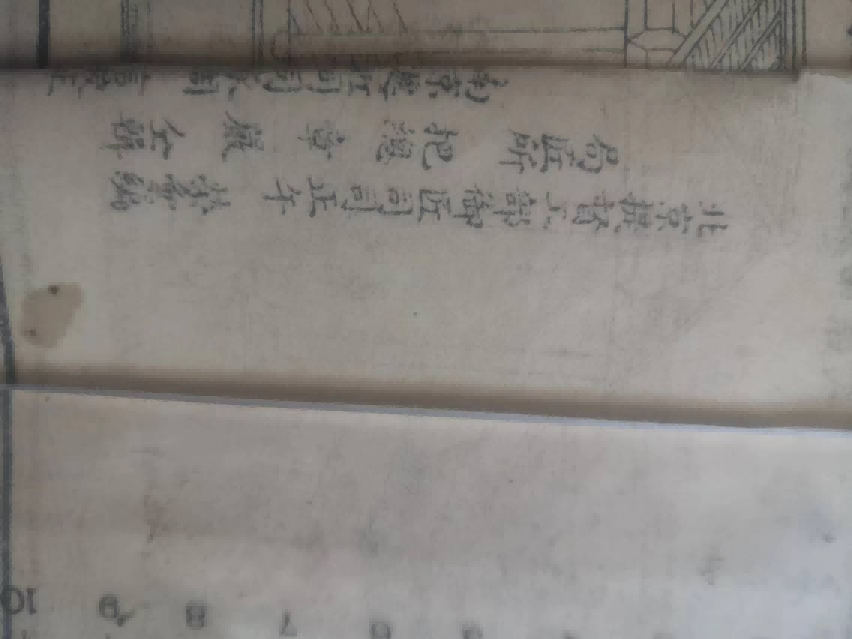 北京提督工部御匠司司正午榮彙編
局匠所把總章嚴仝
南京匠司司承周言校正
10 9 8 7